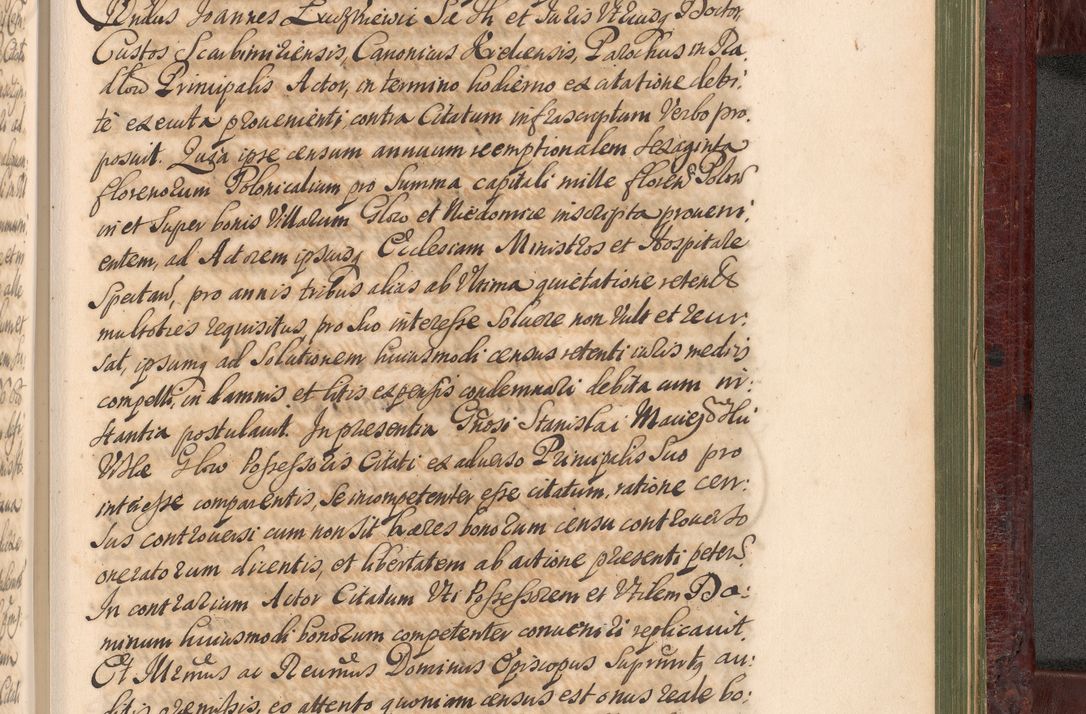 Joannes Sac Th et Juris Utriusq Doctor,
Custos Scarbimiriensis, Canonicus Kielcensis, Parochus in Ra
dłow Principalis Actor, in termino hodierno ex citatione debi,
te executa provenienti, contra Citatum infrascriptum Verbo pro,
posuit. Quia ipse censum annuum reemptionalem sexaginta
florenorum Polonicalium pro Summa capitali mille floren Polon
in et Super bonis Villarum Glow et Niedomice inscripta proveni,
entem, ad Actorem ipsiusq Ecclesiam Ministros et Hospitale
Spectan, pro annis tribus alias ab Ultima quietatione
multoties requisitus, pro Suo interesse Solvere non Vult et recu,
sat, ipsumq ad Solutionem huiusmodi census retenti iuris mediis
compelli, in damnis et litis expensis condemnari debita cum in,
stantia postulavit. In praesentia Gnosi Stanislai
Villae Glow Possessoris Citati ex adverso Principalis Suo pro
interesse comparentis, Se incompetenter esse citatum, ratione cen,
sus controversi cum non Sit haeres bonorum censu controverso
oneratorum dicentis, et libertatem ab actione praesenti peten
In contrarium Actor Citatum Uti Possessorem et Utilem Do:
minum huiusmodi bonorum competenter conveniri replicavit.
Et Illrmus ac Rndmus Dominus Episcopus au:
ditis praemissis, eo attento quoniam census est onus reale bo: